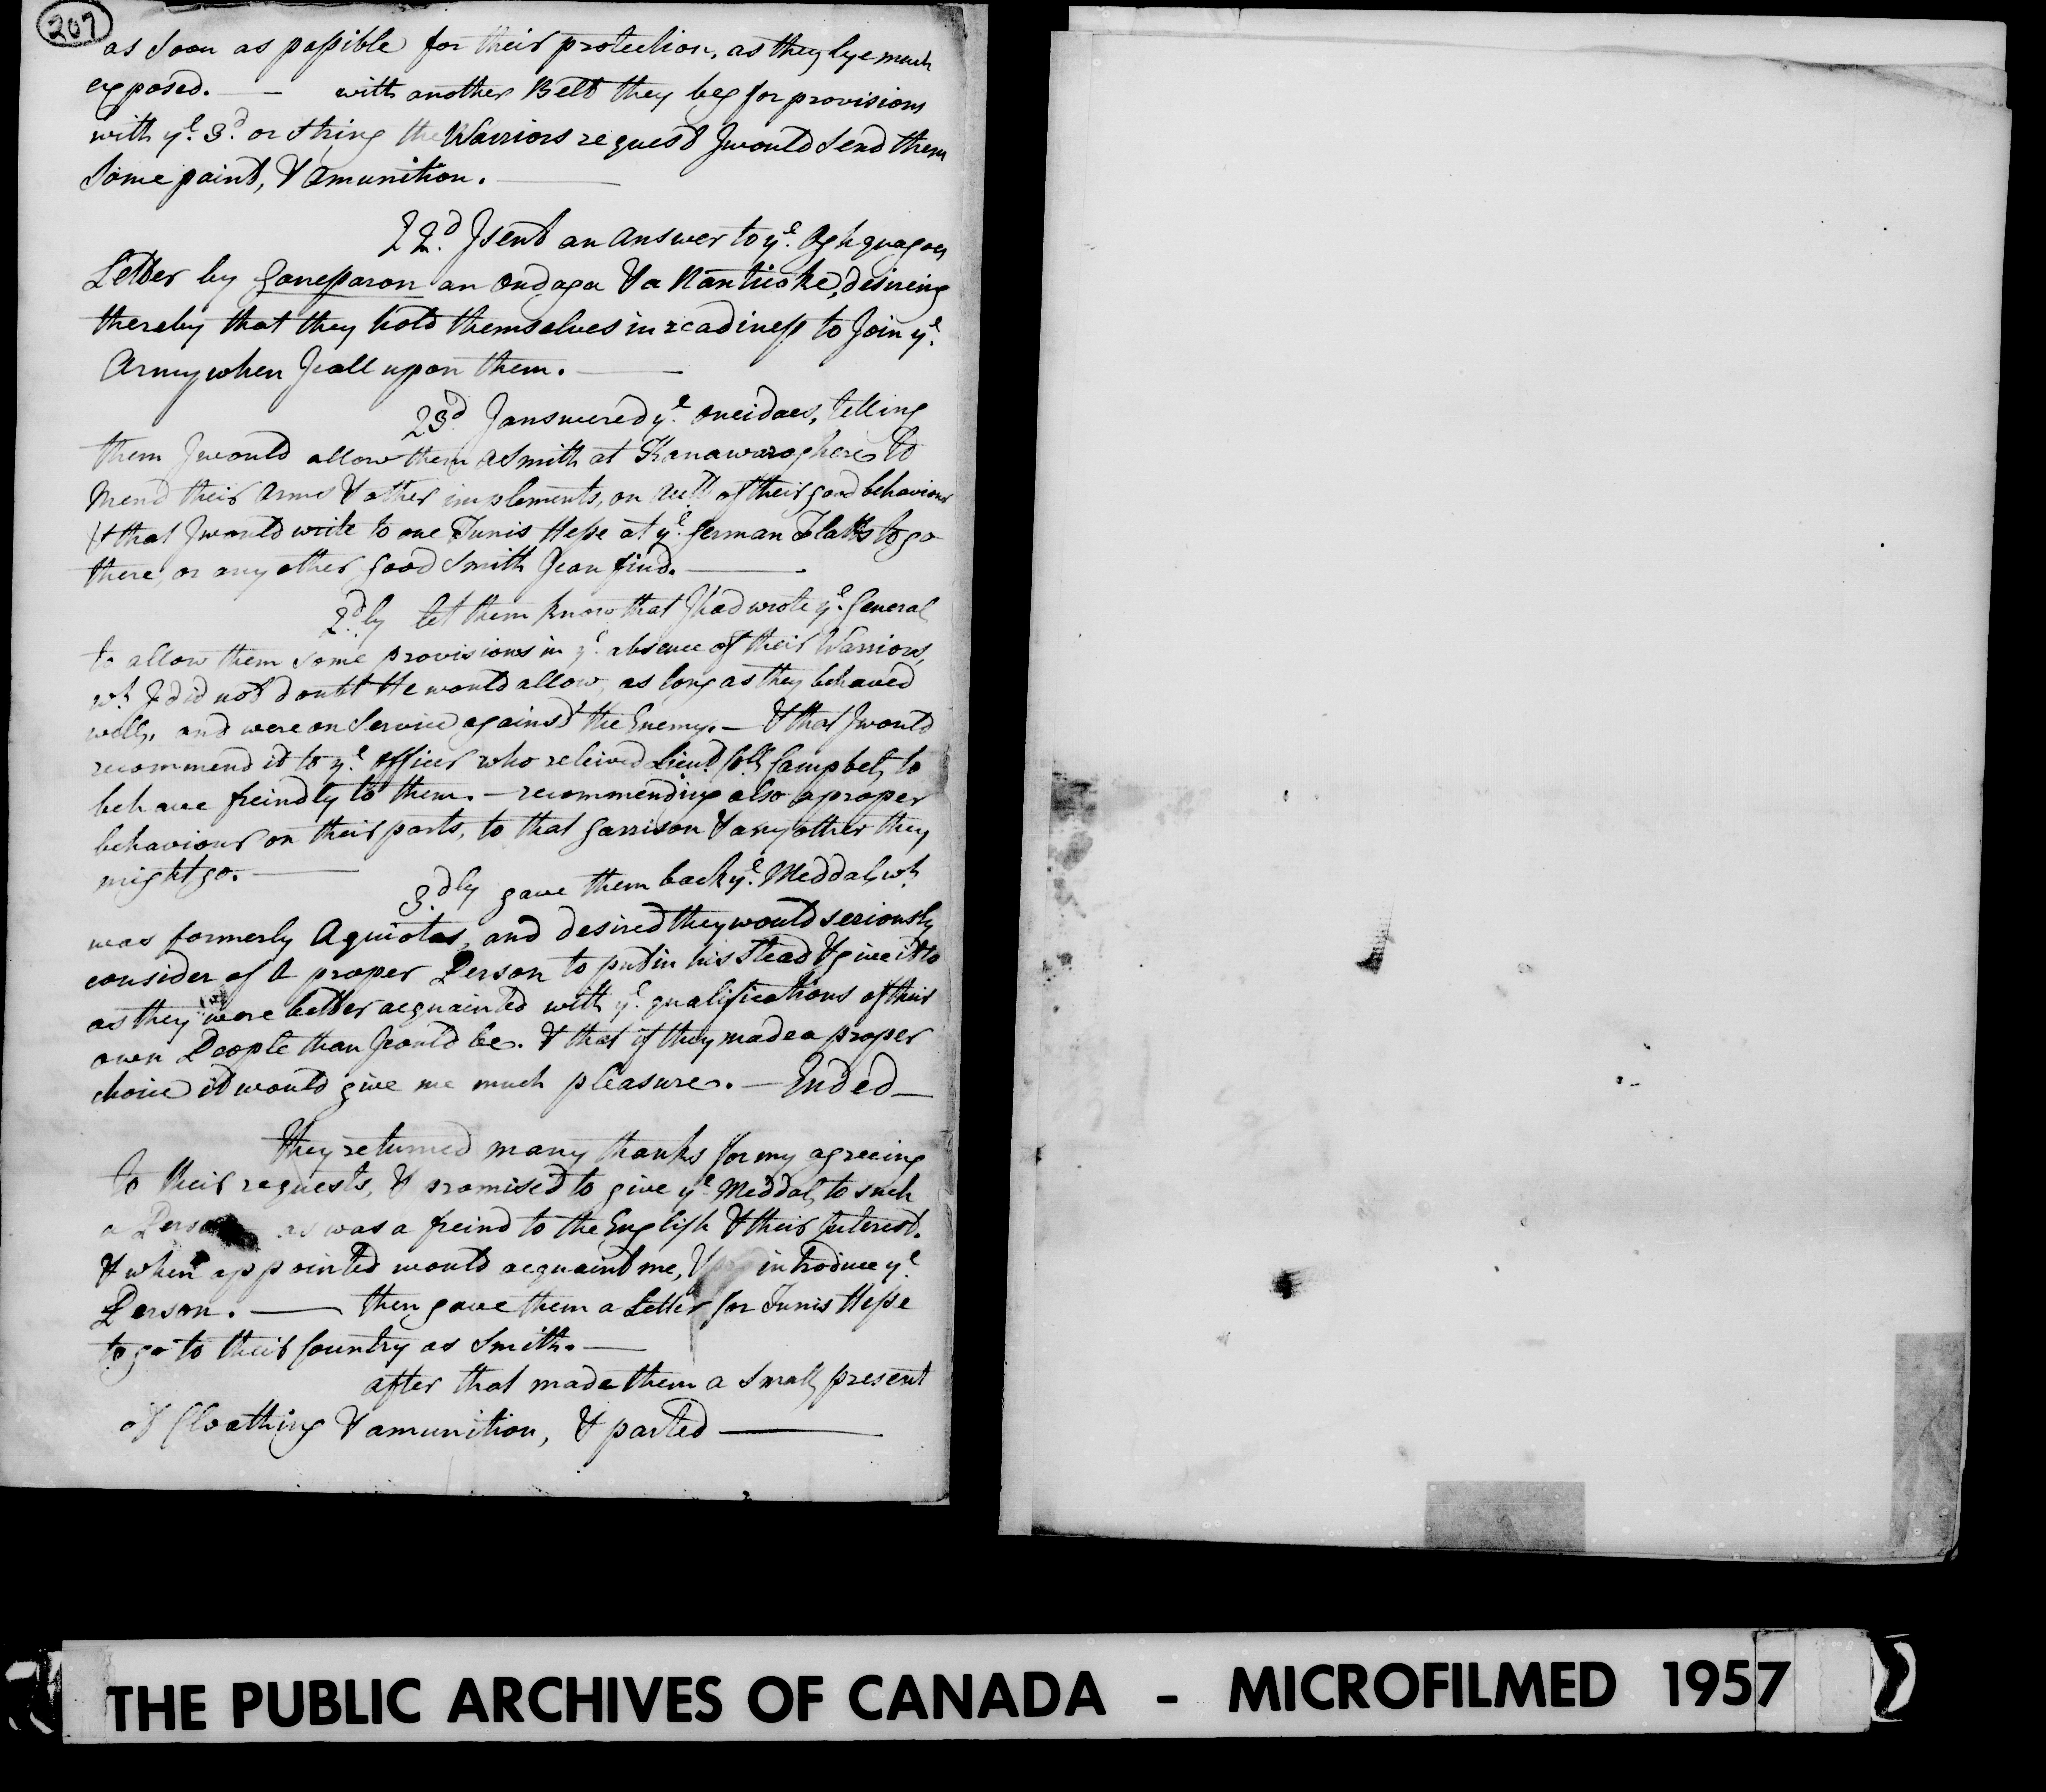 207
as Soon as possible for their protection, as they lye much
exposed. — with another Belt they beg for provisions
with ye. 3d. or string the Warriors request I would send them
some paint, & Amunition. —
22d. I sent an answer to ye. Oghquagoes
Letter by Ganessaron an Ondaga & a Nanticoke, desireing
thereby that they hold themselves in readiness to Join ye.
Army when I call upon them. —
23d. I answered ye. Oneidaes, telling
them I would allow them a Smith at Kanawaroghere to
Mend their Arms & other implements, on Acctt. of their good behaviour
& that I would write to one Tunis Hesse at ye. German Flatts to go
there, or any other good Smith I can find. —
2d.ly let them know that I had wrote ye. General
to allow them some provisions in ye. absence of their Warriors,
wh. I did not doubt He would allow, as long as they behaved
well, and were on Service against the Enemy. — & that I would
recommend it to ye. officer who releived Lieut. Coll. Campbel, to
behave freindly to them. — recommending also a proper
behaviour on their parts, to that Garrison & any other they
might go. —
3.dly gave them back ye. Meddal, wh.
was formerly Aguiotas, and desired they would seriously
consider of A proper Person to put in his Stead & give it to
as they were better acquainted with ye. qualifications of their
own People than I could be. & that if they made a proper
choice it would give me much pleasure. — Ended —
They returned many thanks for my agreeing
to their requests, & promised to give ye. Meddal, to such
a Person as was a freind to the English & their Interest.
& when appointed would acquaint me, & introduce ye.
Person. — then gave them a Letter for Tunis Hesse
to go to their Country as Smith. —
after that made them a Small present
of Cloathing & amunition, & parted —
THE PUBLIC ARCHIVES OF CANADA - MICROFILMED 1957